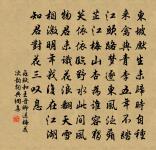 東坡先生未歸時自種
來禽與青李五年不踏
江頭路夢逐東風泛蘋
芷江梅山杏為誰容獨
笑依依臨野水此間風
物君未識花浪翻天雪
相激明年我復在江湖
知君對花三歎息
蘇軾和王晉卿送梅花
次韻